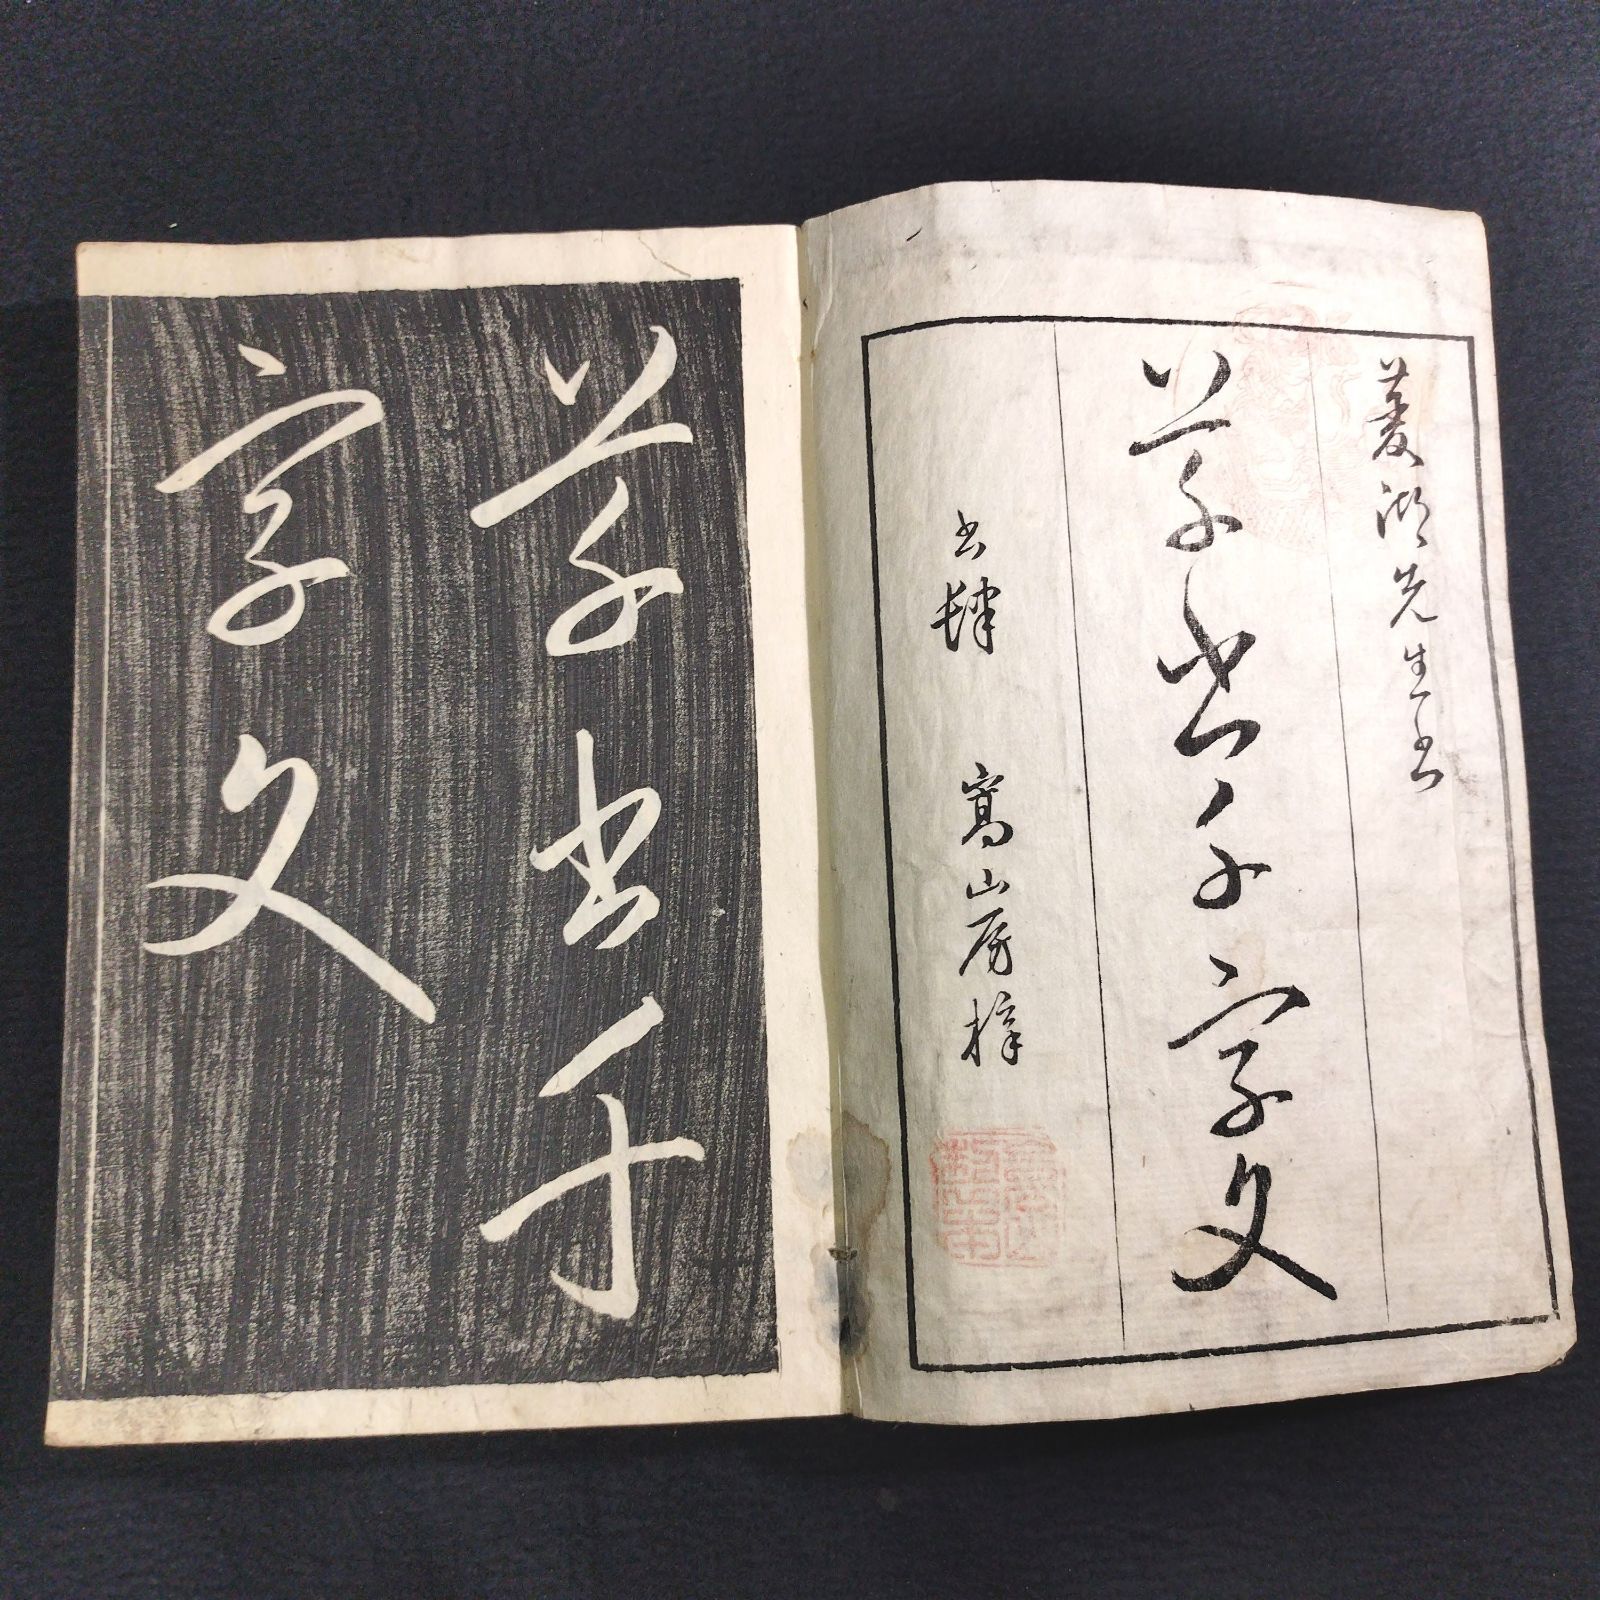 菱湖先生書
草書千字文
書肆 寫山房梓
草書千
字文